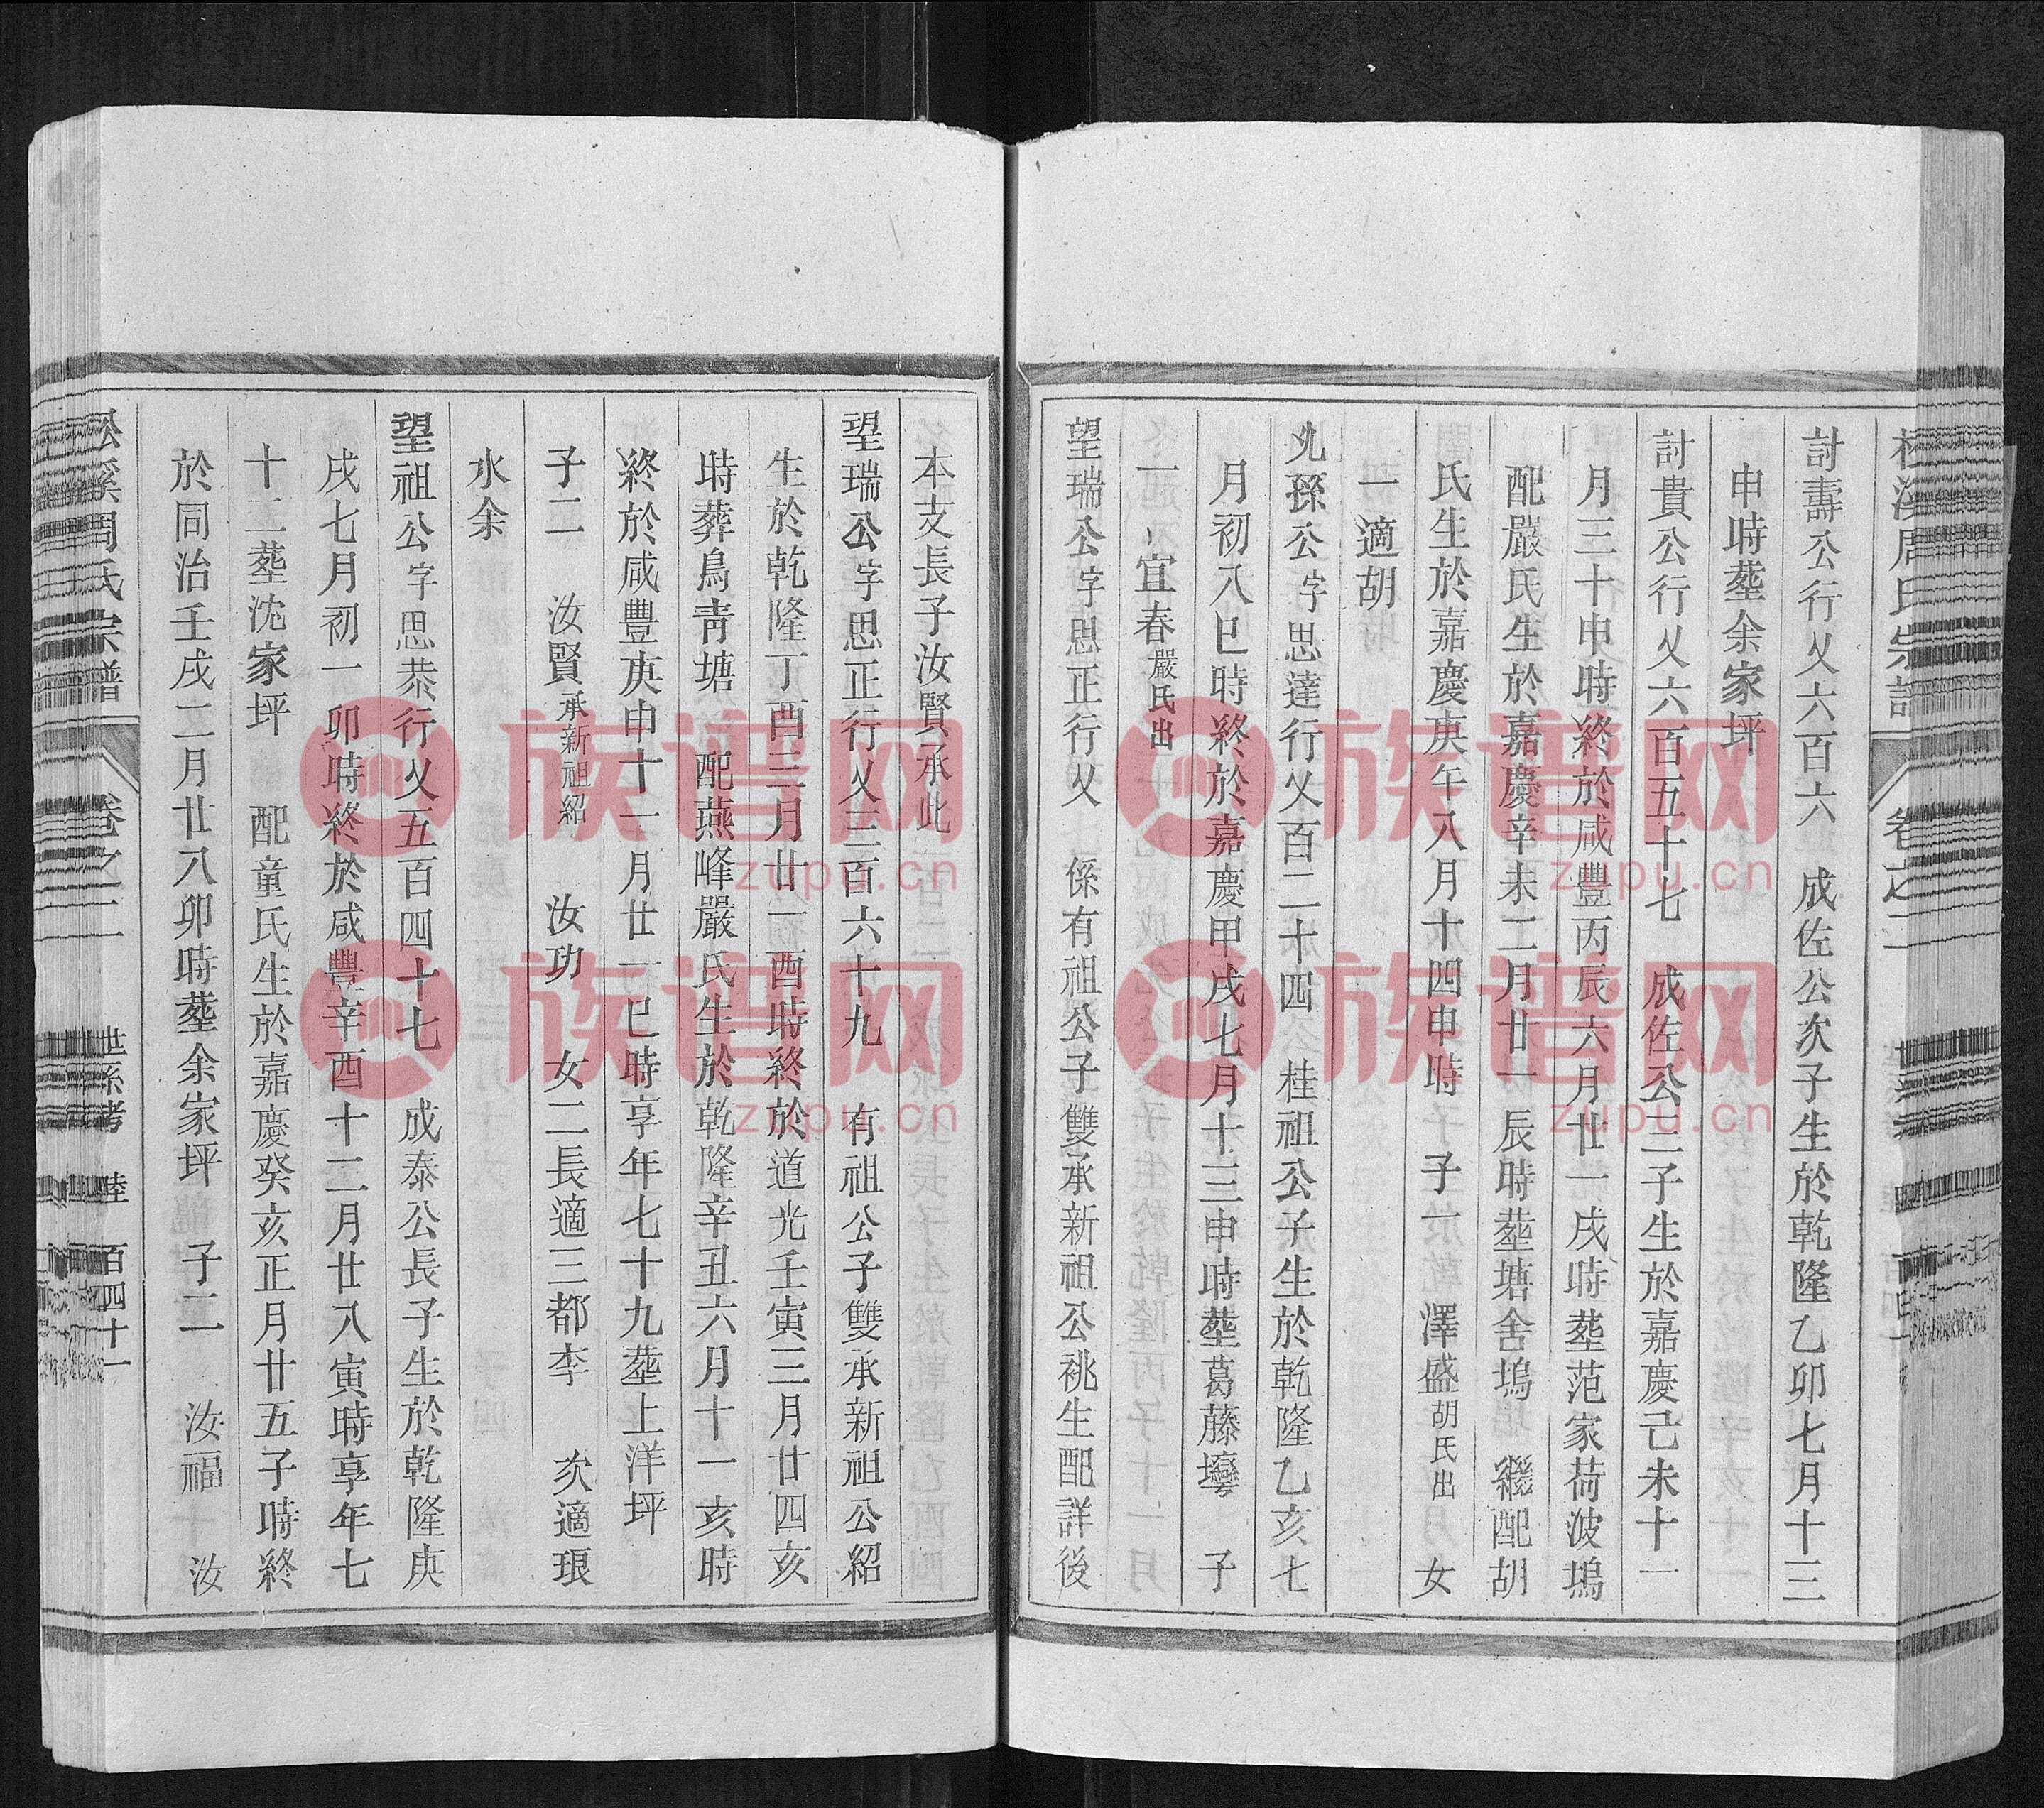 討壽公行乂六百六　成佐公次子生於乾隆乙卯七月十三
申時塟余家坪
討貴公行乂六百五十七　成佐公三子生於嘉慶己未十一
月三十申時終於咸豐丙辰六月廿一戌時塟范家荷波塢
配嚴氏生於嘉慶辛未二月廿一辰時塟塘舍塢　繼配胡
氏生於嘉慶庚午八月十四申時　子一　澤盛胡氏出　女
一適胡
孫公字思達行乂百二十四　桂祖公子生於乾隆乙亥七
月初八巳時終於嘉慶甲戌七月十三申時塟葛藤灣　子
一　宜春嚴氏出
望瑞公字思正行乂　係有祖公子雙承新祖公祧生配詳後
本支長子汝賢承此
望瑞公字思正行乂三百六十九　有祖公子雙承新祖公紹
生於乾隆丁酉三月廿一酉時終於道光壬寅三月廿四亥
時葬鳥靑塘　配燕峰嚴氏生於乾隆辛丑六月十一亥時
終於咸豐庚申十一月廿一巳時享年七十九塟上洋坪
子二　汝賢承新祖紹　汝功　女二長適三都李　次適琅
水余
望祖公字思恭行乂五百四十七　成泰公長子生於乾隆庚
戌七月初一卯時終於咸豐辛酉十二月廿八寅時享年七
十二塟沈家坪　配童氏生於嘉慶癸亥正月廿五子時終
於同治壬戌二月廿八卯時塟余家坪　子二　汝福　汝
周氏宗譜　卷之二　世系考　陸　百四十一